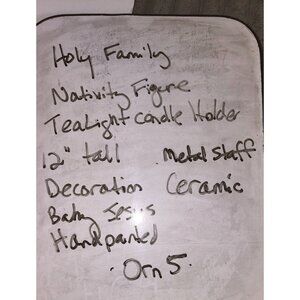 Holy Family
Nativity Figure
Tealight candle Holder
12" tall Metal Staff
Decoration Ceramic
Baby Jesus
Handpainted
Orn 5.